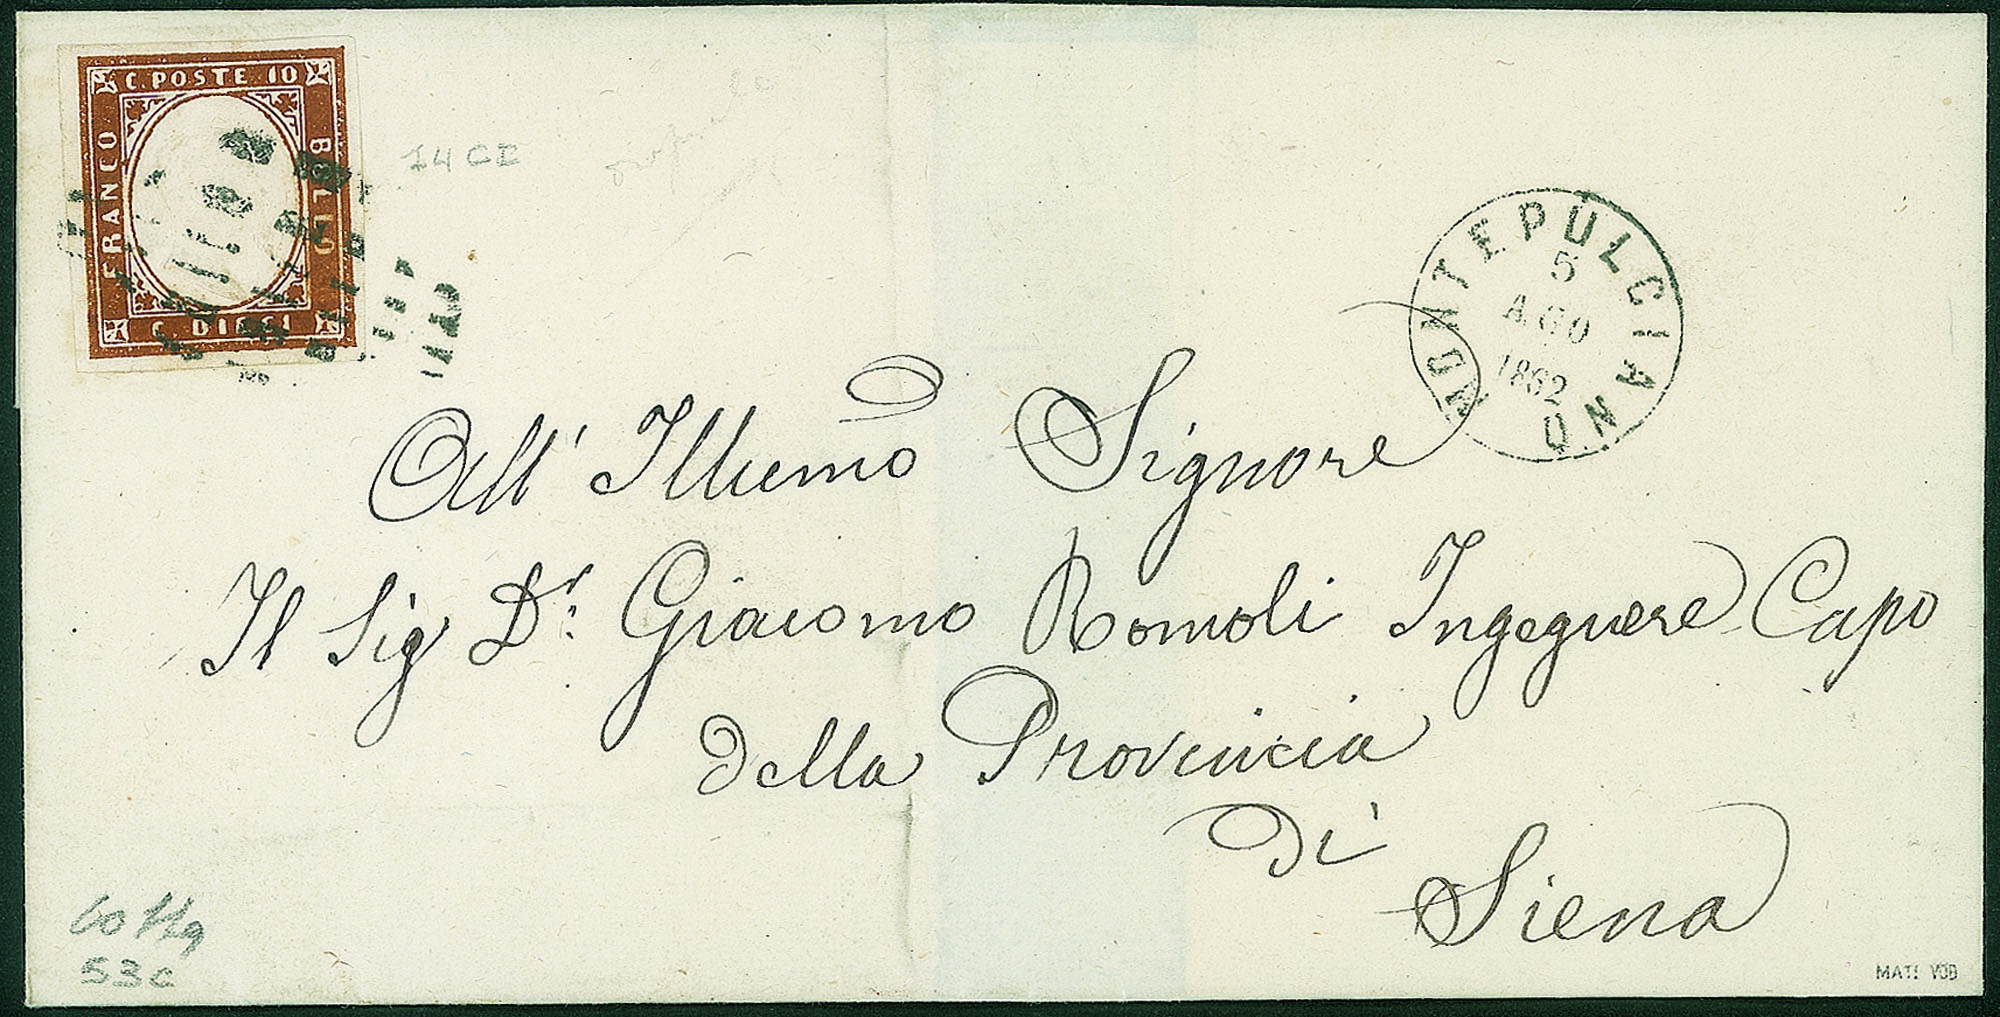 C. POSTE 10
FRANCO
BOLLO
C. DIECI
14CI
MONTEPULCIANO
5
AGO
1862
All' Illmo Signore
Il Sig Dr. Giacomo Romoli Ingegnere Capo
della Provincia
di
Siena
53c